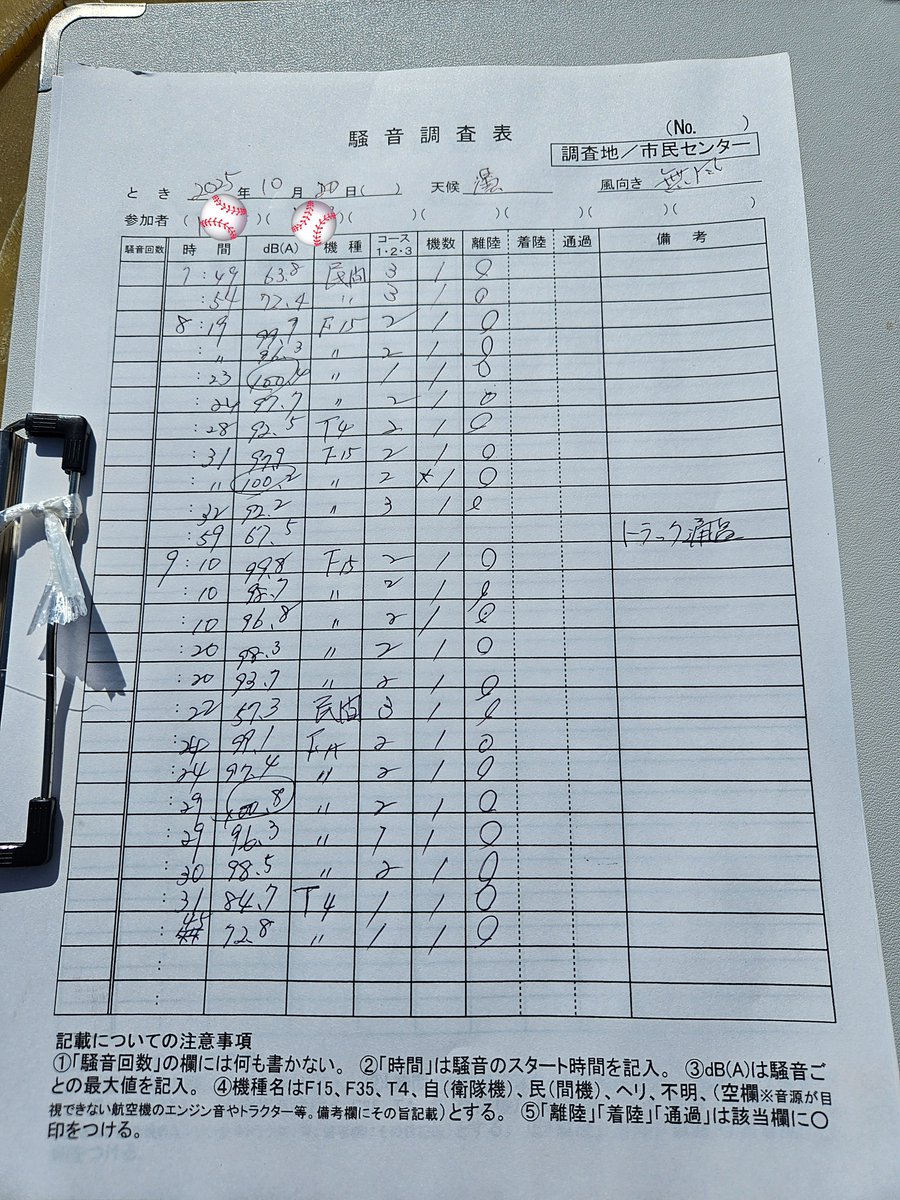 騒音調査表
(No. )
調査地／市民センター
とき 2025年10月20日( ) 天候 風向き 無風
参加者 ( )( )( )( )( )( )( )
騒音回数 時間 dB(A) 機種 コース1・2・3 機数 離陸 着陸 通過 備考
7:49 63.8 民間 3 1 〇
:54 72.4 〃 3 1 〇
8:19 99.7 F15 2 1 〇
:〃 96.3 〃 2 1 〇
:23 100.4 〃 1 1 〇
:24 97.7 〃 2 1 〇
:28 92.5 T4 2 1 〇
:31 97.9 F15 2 1 〇
:〃 100.2 〃 2 1 〇
:32 92.2 〃 3 1 〇
:59 67.5 トラック通過
9:10 99.8 F15 2 1 〇
:10 98.7 〃 2 1 〇
:10 96.8 〃 2 1 〇
:20 98.3 〃 2 1 〇
:20 93.7 〃 2 1 〇
:22 57.3 民間 3 1 〇
:24 99.1 F15 2 1 〇
:24 97.4 〃 2 1 〇
:29 100.8 〃 2 1 〇
:29 96.3 〃 1 1 〇
:30 98.5 〃 2 1 〇
:31 84.7 T4 1 1 〇
:45 72.8 〃 1 1 〇
:
:
記載についての注意事項
①「騒音回数」の欄には何も書かない。 ②「時間」は騒音のスタート時間を記入。 ③dB(A)は騒音ご
との最大値を記入。 ④機種名はF15、F35、T4、自(衛隊機)、民(間機)、ヘリ、不明、(空欄※音源が目
視できない航空機のエンジン音やトラクター等。備考欄にその旨記載)とする。 ⑤「離陸」「着陸」「通過」は該当欄に〇
印をつける。